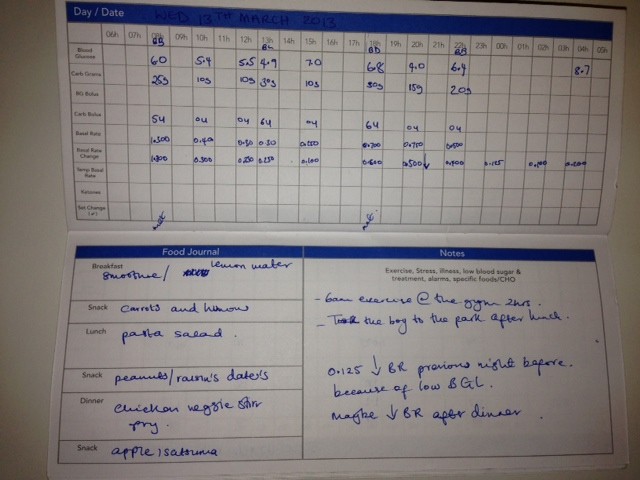 Day / Date WED 13TH MARCH 2013
06h 07h 08h 09h 10h 11h 12h 13h 14h 15h 16h 17h 18h 19h 20h 21h 22h 23h 00h 01h 02h 03h 04h 05h
BB BL BD BB
Blood Glucose 6.0 5.4 5.5 4.9 7.0 6.8 4.0 6.4 8.7
Carb Grams 25g 10g 10g 30g 10g 30g 15g 20g
BG Bolus
Carb Bolus 5u 0u 0u 6u 0u 6u 0u 0u
Basal Rate 0.700 0.750 0.500
Basal Rate Change 0.300 0.100 0.600 0.500↓ 0.400 0.125 0.100
Temp Basal Rate
Ketones
Set Change (✓)
Food Journal
Breakfast smoothie / lemon water
Snack carrots and humous
Lunch pasta salad.
Snack peanuts/raisin's date's
Dinner chicken veggie stir
fry.
Snack apple, satsuma
Notes
Exercise, Stress, illness, low blood sugar &
treatment, alarms, specific foods/CHO
- 6am exercise @ the gym 2hrs.
- Took the boy to the park after lunch.
0.125 ↓ BR previous night before.
because of low BGL.
maybe ↓ BR after dinner.